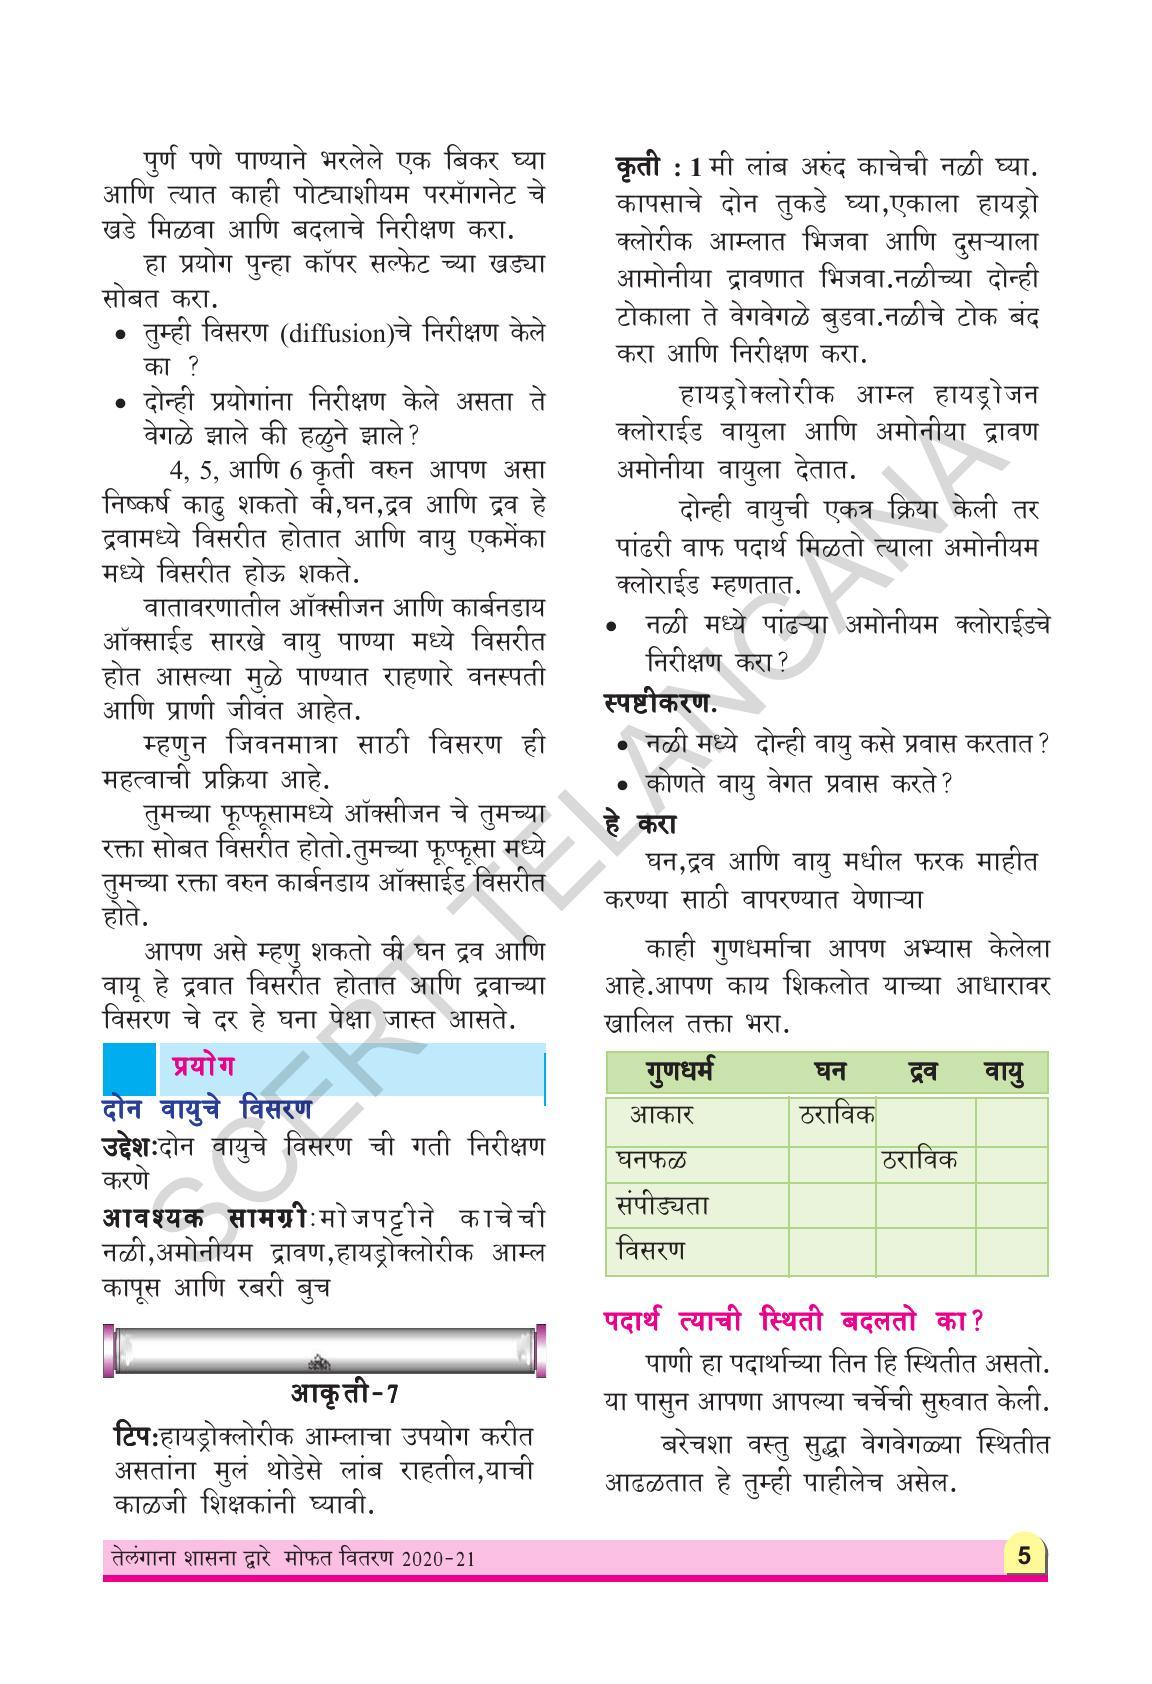 पुर्ण पणे पाण्याने भरलेले एक बिकर घ्या
आणि त्यात काही पोट्याशीयम परमॅागनेट चे
खडे मिळवा आणि बदलाचे निरीक्षण करा.
हा प्रयोग पुन्हा कॉपर सल्फेट च्या खड्या
सोबत करा.
• तुम्ही विसरण (diffusion)चे निरीक्षण केले
का ?
• दोन्ही प्रयोगांना निरीक्षण केले असता ते
वेगळे झाले की हळुने झाले?
4, 5, आणि 6 कृती वरुन आपण असा
निष्कर्ष काढु शकतो की,घन,द्रव आणि द्रव हे
द्रवामध्ये विसरीत होतात आणि वायु एकमेंका
मध्ये विसरीत होऊ शकते.
वातावरणातील ऑक्सीजन आणि कार्बनडाय
ऑक्साईड सारखे वायु पाण्या मध्ये विसरीत
होत आसल्या मुळे पाण्यात राहणारे वनस्पती
आणि प्राणी जीवंत आहेत.
म्हणुन जिवनमात्रा साठी विसरण ही
महत्वाची प्रक्रिया आहे.
तुमच्या फूप्फूसामध्ये ऑक्सीजन चे तुमच्या
रक्ता सोबत विसरीत होतो.तुमच्या फूप्फूसा मध्ये
तुमच्या रक्ता वरुन कार्बनडाय ऑक्साईड विसरीत
होते.
आपण असे म्हणु शकतो की घन द्रव आणि
वायू हे द्रवात विसरीत होतात आणि द्रवाच्या
विसरण चे दर हे घना पेक्षा जास्त आसते.
प्रयोग
दोन वायुचे विसरण
उद्देश:दोन वायुचे विसरण ची गती निरीक्षण
करणे
आवश्यक सामग्री:मोजपट्टीने काचेची
नळी,अमोनीयम द्रावण,हायड्रोक्लोरीक आम्ल
कापूस आणि रबरी बुच
आकृती-7
टिप:हायड्रोक्लोरीक आम्लाचा उपयोग करीत
असतांना मुलं थोडेसे लांब राहतील,याची
काळजी शिक्षकांनी घ्यावी.
कृती : 1 मी लांब अरुंद काचेची नळी घ्या.
कापसाचे दोन तुकडे घ्या,एकाला हायड्रो
क्लोरीक आम्लात भिजवा आणि दुसऱ्याला
आमोनीया द्रावणात भिजवा.नळीच्या दोन्ही
टोकाला ते वेगवेगळे बुडवा.नळीचे टोक बंद
करा आणि निरीक्षण करा.
हायड्रोक्लोरीक आम्ल हायड्रोजन
क्लोराईड वायुला आणि अमोनीया द्रावण
अमोनीया वायुला देतात.
दोन्ही वायुची एकत्र क्रिया केली तर
पांढरी वाफ पदार्थ मिळतो त्याला अमोनीयम
क्लोराईड म्हणतात.
• नळी मध्ये पांढऱ्या अमोनीयम क्लोराईडचे
निरीक्षण करा?
स्पष्टीकरण.
• नळी मध्ये दोन्ही वायु कसे प्रवास करतात?
• कोणते वायु वेगत प्रवास करते?
हे करा
घन,द्रव आणि वायु मधील फरक माहीत
करण्या साठी वापरण्यात येणाऱ्या
काही गुणधर्माचा आपण अभ्यास केलेला
आहे.आपण काय शिकलोत याच्या आधारावर
खालिल तक्ता भरा.
गुणधर्म घन द्रव वायु
आकार ठराविक
घनफळ ठराविक
संपीड्यता
विसरण
पदार्थ त्याची स्थिती बदलतो का?
पाणी हा पदार्थाच्या तिन हि स्थितीत असतो.
या पासुन आपणा आपल्या चर्चेची सुरुवात केली.
बरेचशा वस्तु सुद्धा वेगवेगळ्या स्थितीत
आढळतात हे तुम्ही पाहीलेच असेल.
तेलंगाना शासना द्वारे मोफत वितरण 2020-21
5
SCERT TELANGANA